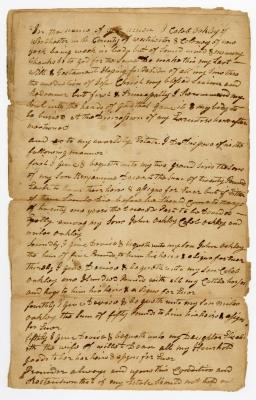 In the name of God amen I Caleb Oakley of
Westchester in the County of Westchester & Colony of new
york being weak in body but of Sound mind & memory
thanks be to God for the Same Do make this my Last
will & testament Hoping for Pardon of all my
and
but first & Principally I Recommend my
Soul into the hands of God that Gave it & my body to
be buried at the Discretion of my Executors here after
mentioned
and as to my worldly Estate I Dispose of in the
following manner
first I give & bequeath unto my two grand Sons the Sons
of my Son Benjamin the Sum of twenty Pound
Each to them their heirs & assigns for Ever but if Either
of them Should Die before he Should Come to the age
of twenty one years the to be
among my Sons John Oakley Caleb Oakley and
Oakley
Secondly I give Devise & bequeath unto my Son John Oakley
the Sum of five Pounds to him his heirs & assigns for Ever
thirdly I give Devise & bequeath unto my Son Caleb
Oakley one Hundred with all my
and to him his heirs & assigns for Ever
fourthly I give Devise & bequeath unto my Son
Oakley the Sum of fifty Pounds to him his heirs & assigns
for Ever
fifthly I give Devise & bequeath unto my Daughter
the wife of all my Household
goods to her her heirs & assigns for Ever
Provided always and upon this Condition and
that if my Estate Should not hold out